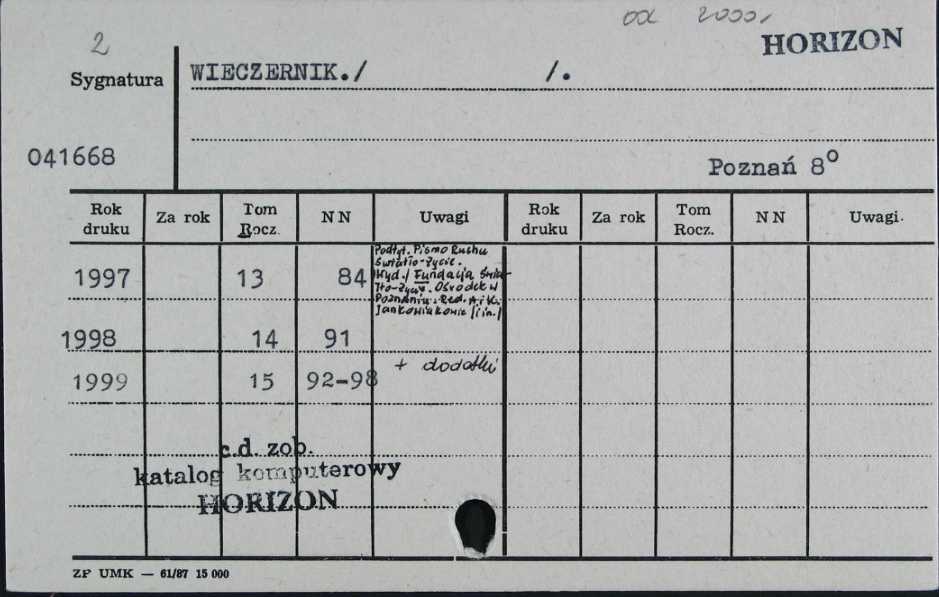 od 2000,
HORIZON
2
Sygnatura
WIECZERNIK./ /.
041668
Poznań 8°
Rok druku Za rok Tom Rocz. NN Uwagi Rok druku Za rok Tom Rocz. NN Uwagi.
1997 13 84
Podtyt. Pismo Ruchu
Światło-Życie.
Wyd./ Fundacja Świa-
tło-Życie. Ośrodek w
Poznaniu. Red. A. i K.
Jankowiakowie /i in./
1998 14 91
1999 15 92-98 + dodatki
c.d. zob.
katalog komputerowy
HORIZON
ZP UMK — 61/87 15 000